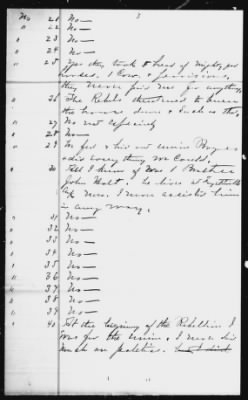 3
No 21 No—
" 22 No—
" 23 No—
" 24 No—
" 25 Yes they took 4 head of Mules, for
horses. 1 Cow, & provisions,
they never paid me for anything.
" 26 The Rebels threatened to burn
the house down & such as that,
" 27 No not especially
" 28 No—
" 29 I fed & hid out union Boys
& did everything we Could.
" 30 All I know of was 1 Brother
John Holt. he lives at Fayetteville
Ark now. I never assisted him
in any way.
" 31 No—
" 32 No—
" 33 No—
" 34 No—
" 35 No—
" 36 No—
" 37 No—
" 38 No—
" 39 No—
" 40 At the beginning of the Rebellion I
was for the union, I never did
much on politics.